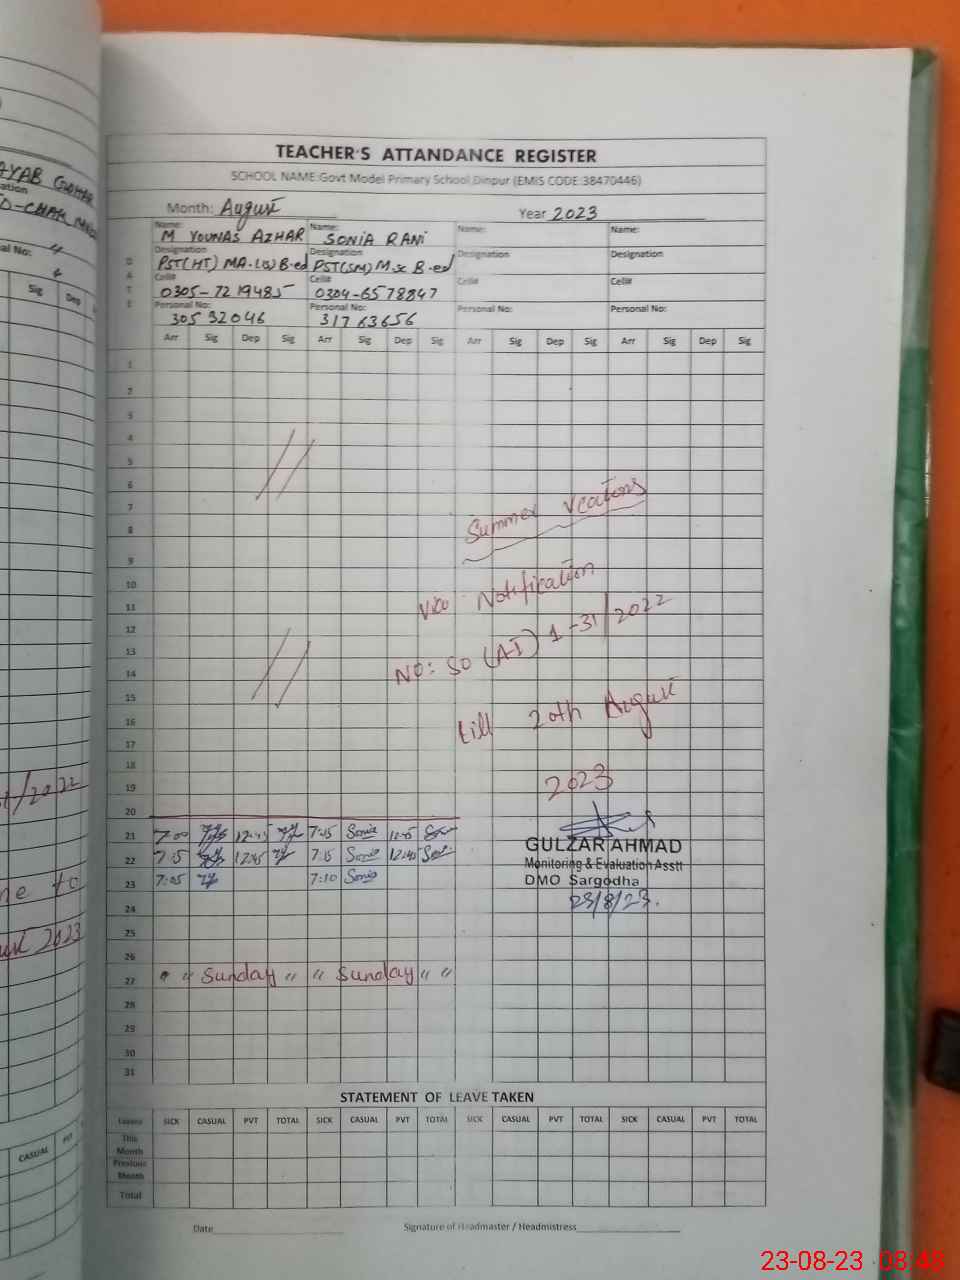 TEACHER'S ATTANDANCE REGISTER
SCHOOL NAME:Govt Model Primary School,Dinpur (EMIS CODE:38470446)
Month: August Year 2023
Name: Name: Name: Name:
M YOUNAS AZHAR SONIA RANI
Designation Designation Designation Designation
PST(HT) MA. B-ed PST(SM) M.sc B-ed
Cell# Cell# Cell# Cell#
0305-7219485 0304-6578847
Personal No: Personal No: Personal No: Personal No:
305 92046 317 63656
DATE
Arr Sig Dep Sig Arr Sig Dep Sig Arr Sig Dep Sig Arr Sig Dep Sig
1
2
3
4
5
6
7
8
9
10
11
12
13
14
15
16
17
18
19
20
Summer Vcations
Notification
NO: SO (A-I) 1-31/2022
till 20th August
2023
21 7:00 12:45 7:15 Sonia
22 7:15 12:45 7:15 Sonia 12:45
23 7:05 7:10 Sonia
24
25
26
27 " Sunday " " Sunday " "
28
29
30
31
GULZAR AHMAD
Monitoring & Evaluation Asstt
DMO Sargodha
23/8/23.
STATEMENT OF LEAVE TAKEN
Leaves SICK CASUAL PVT TOTAL SICK CASUAL PVT TOTAL SICK CASUAL PVT TOTAL SICK CASUAL PVT TOTAL
This Month
Previous Month
Total
Date Signature of Headmaster / Headmistress
Sig Dep
/2022
to
2023
CASUAL
23-08-23 08:48